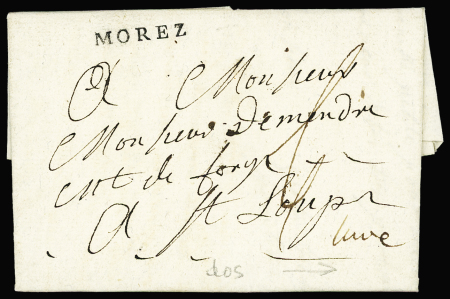 MOREZ
A Monsieur
Monsieur Demandre
Mt de forge
A St Loup
dos